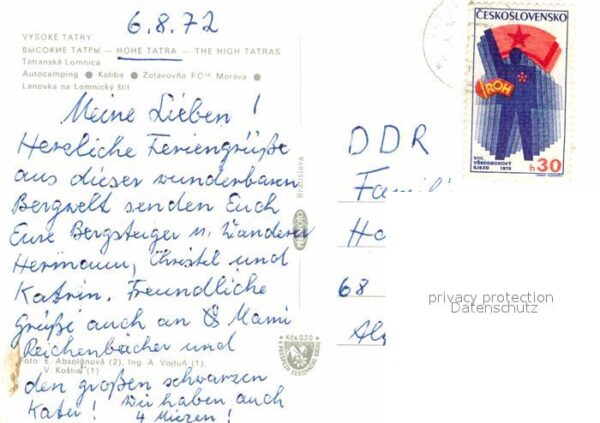 6.8.72
VYSOKÉ TATRY
ВЫСОКИЕ ТАТРЫ — HOHE TATRA — THE HIGH TATRAS
Tatranská Lomnica
Autocamping ● Koliba ● Zotavovňa ROH Morava ●
Lanovka na Lomnický štít
Meine Lieben!
Herzliche Feriengrüße
aus dieser wunderbaren
Bergwelt senden Euch
Eure Bergsteiger u. Wanderer
Hermann, Christel und
Katrin. Freundliche
Grüße auch an Mami
Reichenbächer und
Foto: E. Absolónová (2), Ing. A. Vojtuň (1),
V. Koštial (1)
den großen schwarzen
Kater! Wir haben auch
4 Miezen!
Bratislava
Kčs 0,20
ČESKOSLOVENSKO
ROH
VIII.
VŠEODBOROVÝ
SJEZD 1972
h 30
DDR
Famil
Ha
68
privacy protection
Datenschutz